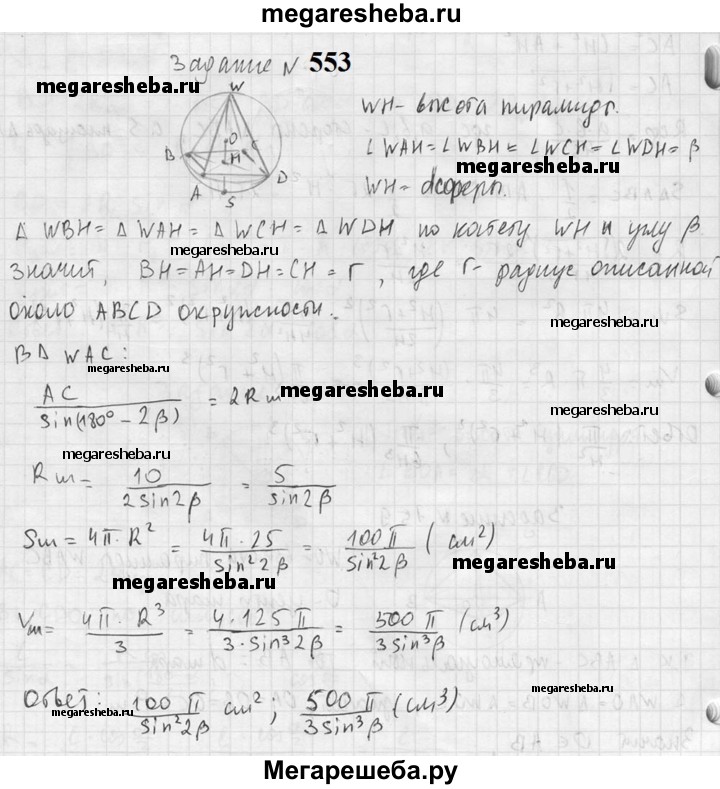 megaresheba.ru
Задание N 553
megaresheba.ru
W
O
B H C
A D
S
WH - высота пирамиды.
∠WAH = ∠WBH = ∠WCH = ∠WDH = β
megaresheba.ru
WH =
Δ WBH = Δ WAH = Δ WCH = Δ WDH по катету WH и углу β
megaresheba.ru
значит, BH = AH = DH = CH = r, где r - радиус описанной
около ABCD окружности.
megaresheba.ru
В Δ WAC:
megaresheba.ru
AC / sin(180° - 2β) = 2Rш
megaresheba.ru
Rш = 10 / 2sin2β = 5 / sin2β
Sш = 4π · R² = 4π · 25 / sin²2β = 100π / sin²2β (см²)
megaresheba.ru
megaresheba.ru
Vш = 4π · R³ / 3 = 4 · 125π / 3 · sin³2β = 500π / 3sin³β (см³)
Ответ: 100π / sin²2β см²; 500π / 3sin³β (см³)
megaresheba.ru
megaresheba.ru
Мегарешеба.ру